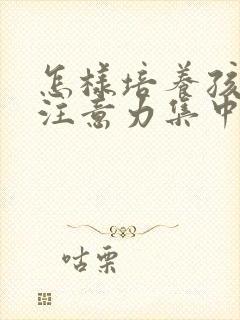 怎样培养孩
注意力集中
咕栗